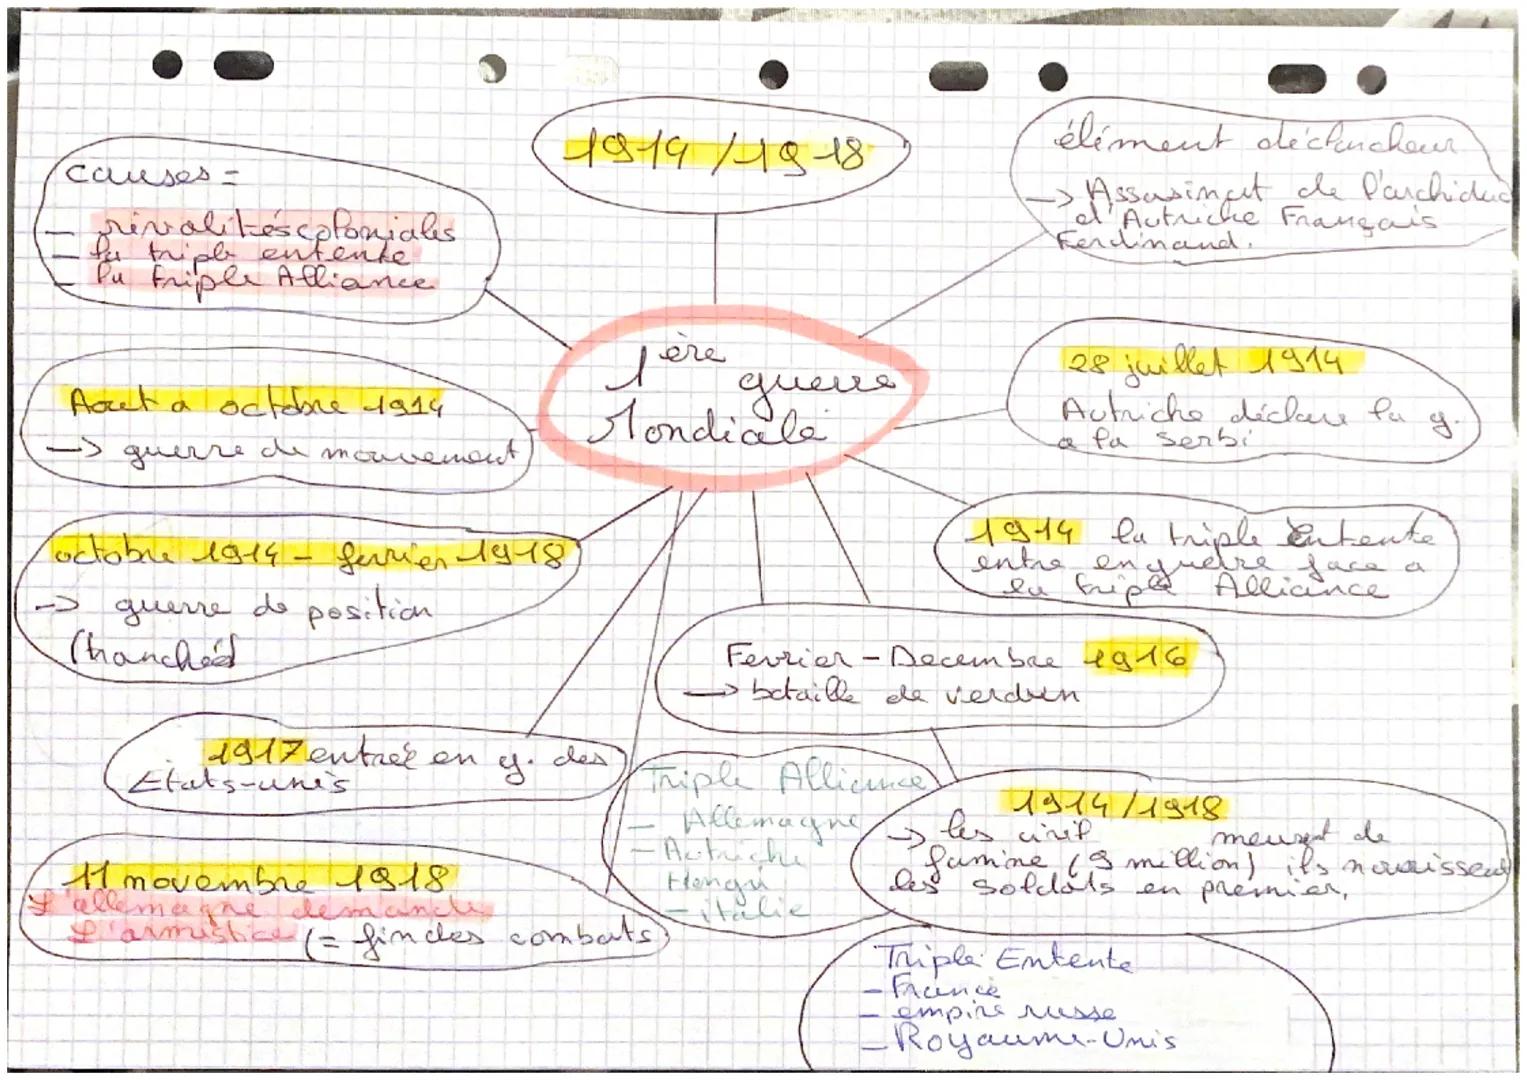 1914 / 1918
causes =
- rivalités coloniales
- la triple entente
- la Triple Alliance
élément déclencheur
-> Assasinat de l'archiduc
d'Autriche Français
Ferdinand.
1ère
guerre
Mondiale
28 juillet 1914
Autriche déclare la g.
a la serbi
Aout a octobre 1914
-> guerre de mouvement
1914 la triple Entente
entre en guerre face a
la triple Alliance
octobre 1914 - fevrier 1918
-> guerre de position
(tranchée)
Fevrier - Decembre 1916
-> bataille de verdun
1917 entrée en g. des
Etats-unis
Triple Alliance
- Allemagne
- Autriche
Hongri
- italie
1914/1918
-> les civil meurent de
famine (9 million) ils nourissent
les soldats en premier.
11 novembre 1918
L'allemagne demande
L'armistice (= fin des combats)
Triple Entente
- France
- empire russe
- Royaume-Unis